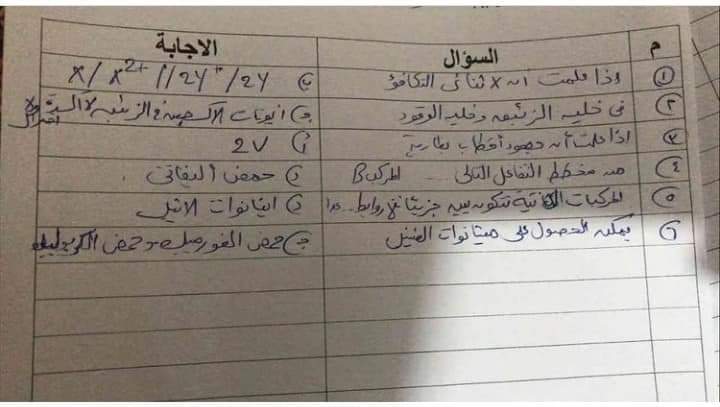 م السؤال الاجابة
١ إذا علمت أن X ثنائى التكافؤ ب X/X2+//2Y-/2Y
٢ فى خلية الزئبق وخلية الوقود ج ايونات الاكسجين فى الزئبق لا أكسدة ولا اختزال
٣ اذا علمت أن جهود أقطاب بطارية أ 2V
٤ من مخطط التفاعل التالى ... المركب B د حمض
٥ المركبات الآتية تتكون بين جزيئاتها روابط ... عدا د ايثانوات الاثيل
٦ يمكن الحصول على ميثانوات الفينيل ج حمض الفورميك وحمض الكربوليك